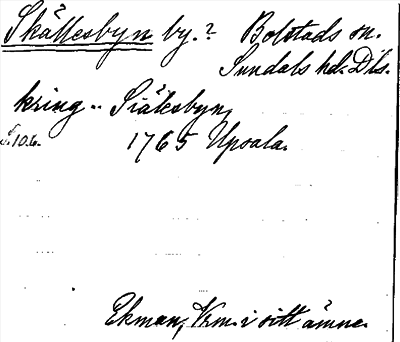 Skållesbyn by.? Bolstads sn.
Sundals hd. Dls.
kring .. Siålesbyn
S. 106. 1765 Upsala.
Ekman, Vrm. i sitt ämne.